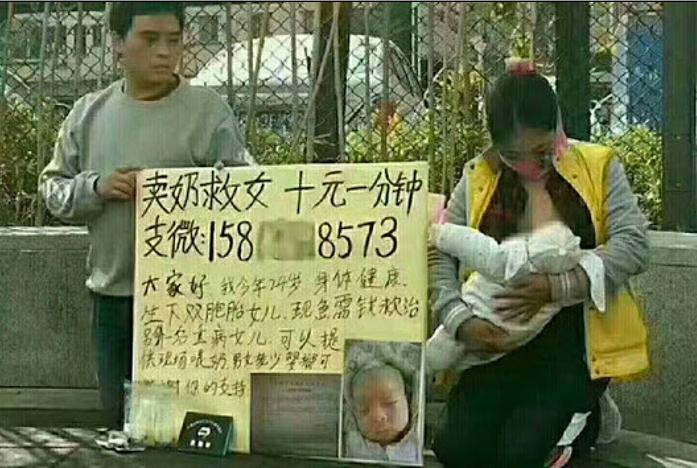 卖奶救女 十元一分钟
支微:158 8573
大家好 我今年24岁 身体健康
生下双胞胎女儿 现急需钱救治
另一名重病女儿 可以提
供现场喂奶 男女老少婴都可
谢谢你的支持